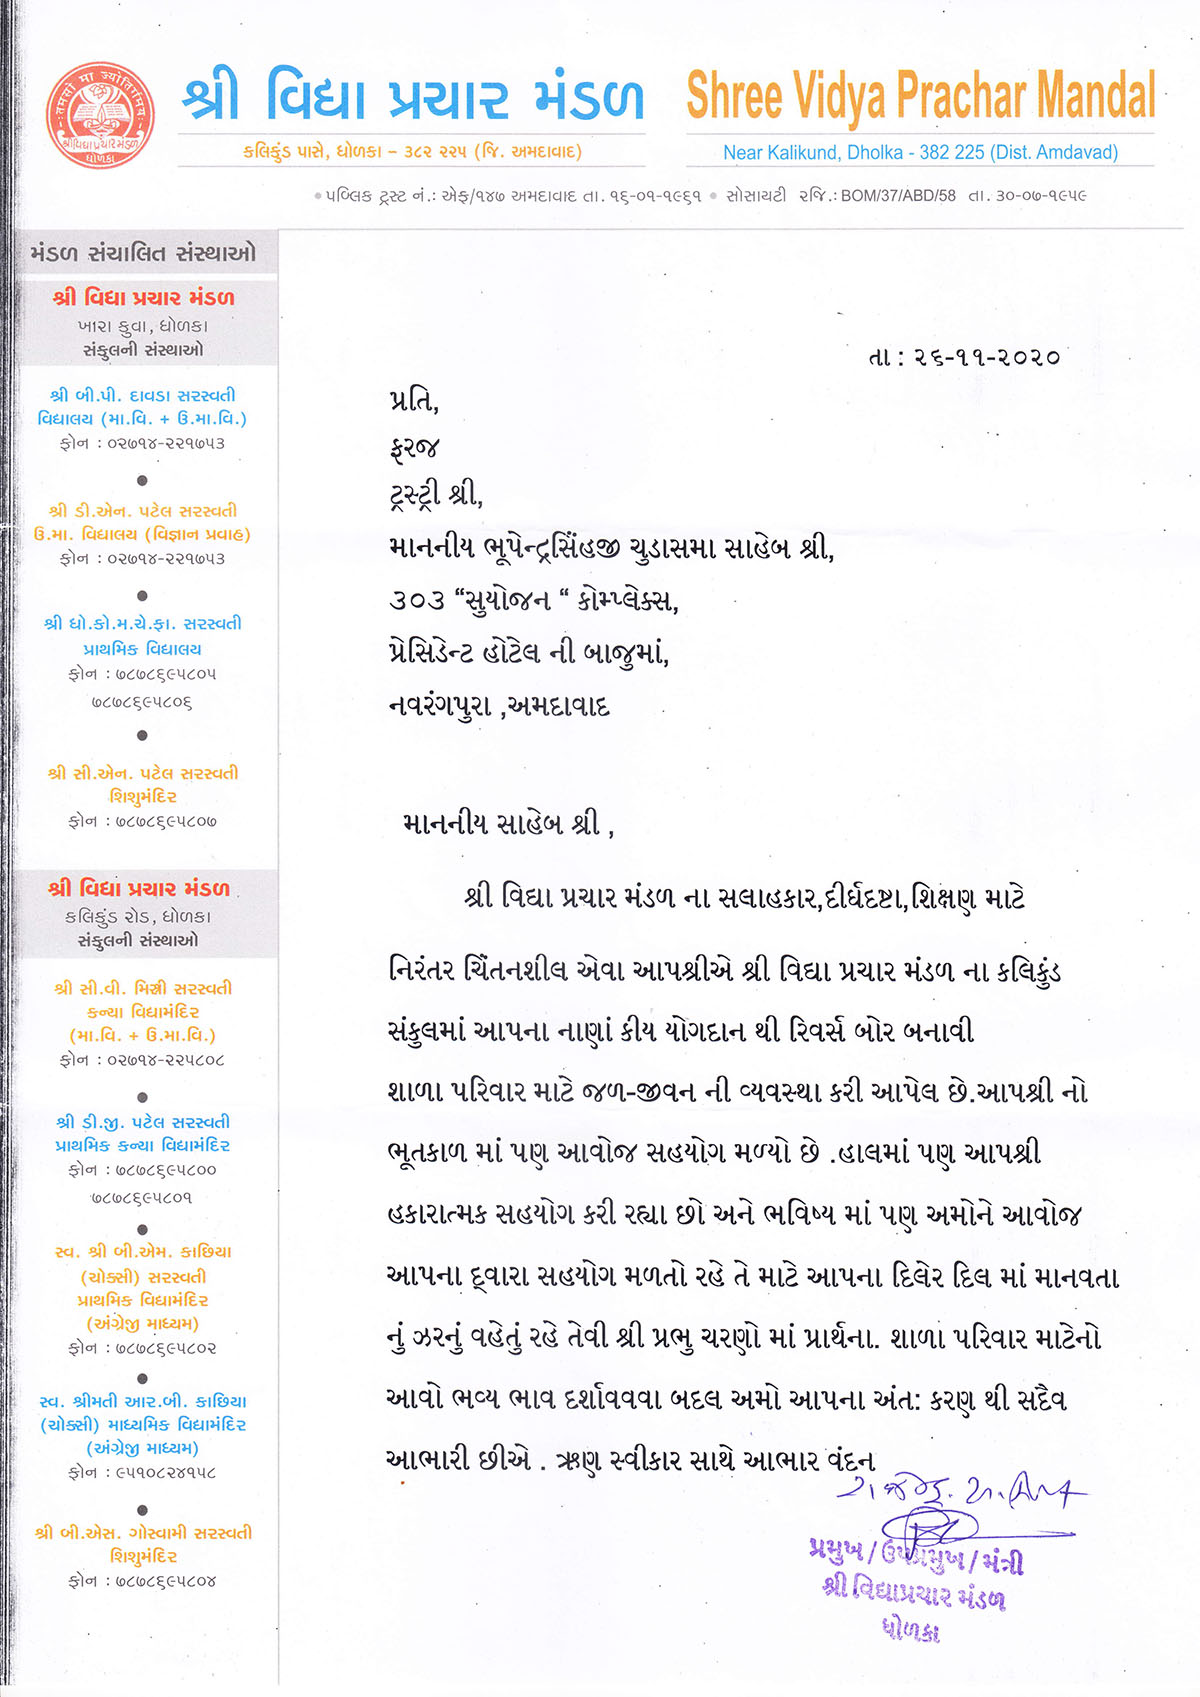 તમસો મા જ્યોતિર્ગમય
શ્રી વિદ્યા પ્રચાર મંડળ
ધોળકા
શ્રી વિદ્યા પ્રચાર મંડળ
કલિકુંડ પાસે, ધોળકા – ૩૮૨ ૨૨૫ (જિ. અમદાવાદ)
Shree Vidya Prachar Mandal
Near Kalikund, Dholka - 382 225 (Dist. Amdavad)
• પબ્લિક ટ્રસ્ટ નં.: એફ/૧૪૭ અમદાવાદ તા. ૧૬-૦૧-૧૯૬૧ • સોસાયટી રજિ.: BOM/37/ABD/58 તા. ૩૦-૦૭-૧૯૫૯
મંડળ સંચાલિત સંસ્થાઓ
શ્રી વિદ્યા પ્રચાર મંડળ
ખારા કુવા, ધોળકા
સંકુલની સંસ્થાઓ
શ્રી બી.પી. દાવડા સરસ્વતી
વિદ્યાલય (મા.વિ. + ઉ.મા.વિ.)
ફોન : ૦૨૭૧૪-૨૨૧૭૫૩
શ્રી ડી.એન. પટેલ સરસ્વતી
ઉ.મા. વિદ્યાલય (વિજ્ઞાન પ્રવાહ)
ફોન : ૦૨૭૧૪-૨૨૧૭૫૩
શ્રી ધો.કો.મ.ચે.ફા. સરસ્વતી
પ્રાથમિક વિદ્યાલય
ફોન : ૭૮૭૮૬૯૫૮૦૫
૭૮૭૮૬૯૫૮૦૬
શ્રી સી.એન. પટેલ સરસ્વતી
શિશુમંદિર
ફોન : ૭૮૭૮૬૯૫૮૦૭
શ્રી વિદ્યા પ્રચાર મંડળ
કલિકુંડ રોડ, ધોળકા
સંકુલની સંસ્થાઓ
શ્રી સી.વી. મિસ્ત્રી સરસ્વતી
કન્યા વિદ્યામંદિર
(મા.વિ. + ઉ.મા.વિ.)
ફોન : ૦૨૭૧૪-૨૨૫૮૦૮
શ્રી ડી.જી. પટેલ સરસ્વતી
પ્રાથમિક કન્યા વિદ્યામંદિર
ફોન : ૭૮૭૮૬૯૫૮૦૦
૭૮૭૮૬૯૫૮૦૧
સ્વ. શ્રી બી.એમ. કાછિયા
(ચોક્સી) સરસ્વતી
પ્રાથમિક વિદ્યામંદિર
(અંગ્રેજી માધ્યમ)
ફોન : ૭૮૭૮૬૯૫૮૦૨
સ્વ. શ્રીમતી આર.બી. કાછિયા
(ચોક્સી) માધ્યમિક વિદ્યામંદિર
(અંગ્રેજી માધ્યમ)
ફોન : ૯૫૧૦૮૨૪૧૫૮
શ્રી બી.એસ. ગોસ્વામી સરસ્વતી
શિશુમંદિર
ફોન : ૭૮૭૮૬૯૫૮૦૪
તા : ૨૬-૧૧-૨૦૨૦
પ્રતિ,
ફરજ
ટ્રસ્ટ્રી શ્રી,
માનનીય ભૂપેન્દ્રસિંહજી ચુડાસમા સાહેબ શ્રી,
૩૦૩ “સુયોજન “ કોમ્પ્લેક્સ,
પ્રેસિડેન્ટ હોટેલ ની બાજુમાં,
નવરંગપુરા ,અમદાવાદ
માનનીય સાહેબ શ્રી ,
શ્રી વિદ્યા પ્રચાર મંડળ ના સલાહકાર,દીર્ઘદષ્ટા,શિક્ષણ માટે
નિરંતર ચિંતનશીલ એવા આપશ્રીએ શ્રી વિદ્યા પ્રચાર મંડળ ના કલિકુંડ
સંકુલમાં આપના નાણાં કીય યોગદાન થી રિવર્સ બોર બનાવી
શાળા પરિવાર માટે જળ-જીવન ની વ્યવસ્થા કરી આપેલ છે.આપશ્રી નો
ભૂતકાળ માં પણ આવોજ સહયોગ મળ્યો છે .હાલમાં પણ આપશ્રી
હકારાત્મક સહયોગ કરી રહ્યા છો અને ભવિષ્ય માં પણ અમોને આવોજ
આપના દ્વારા સહયોગ મળતો રહે તે માટે આપના દિલેર દિલ માં માનવતા
નું ઝરનું વહેતું રહે તેવી શ્રી પ્રભુ ચરણો માં પ્રાર્થના. શાળા પરિવાર માટેનો
આવો ભવ્ય ભાવ દર્શાવવવા બદલ અમો આપના અંત: કરણ થી સદૈવ
આભારી છીએ . ઋણ સ્વીકાર સાથે આભાર વંદન
પ્રમુખ / ઉપપ્રમુખ / મંત્રી
શ્રી વિદ્યાપ્રચાર મંડળ
ધોળકા